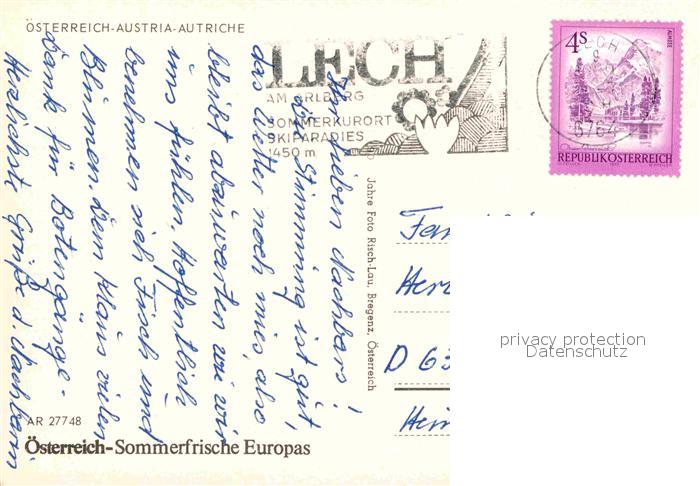 ÖSTERREICH-AUSTRIA-AUTRICHE
LECH
AM ARLBERG
SOMMERKURORT
SKIPARADIES
1450 m
LECH
6764
4 S
ALMSEE
REPUBLIK ÖSTERREICH
Ihr lieben Nachbars!
Die Stimmung ist gut,
das Wetter noch mies, also
bleibt abzuwarten wie wir
uns fühlen. Hoffentlich
benehmen sich Fisch und
Blumen. Dem Klaus vielen
Dank für Botengänge.
Herzlichste Grüße d. Nachbarn
Jahre Foto Risch-Lau, Bregenz, Österreich
Fam
Her
D 63
Hei
privacy protection
Datenschutz
AR 27748
Österreich-Sommerfrische Europas